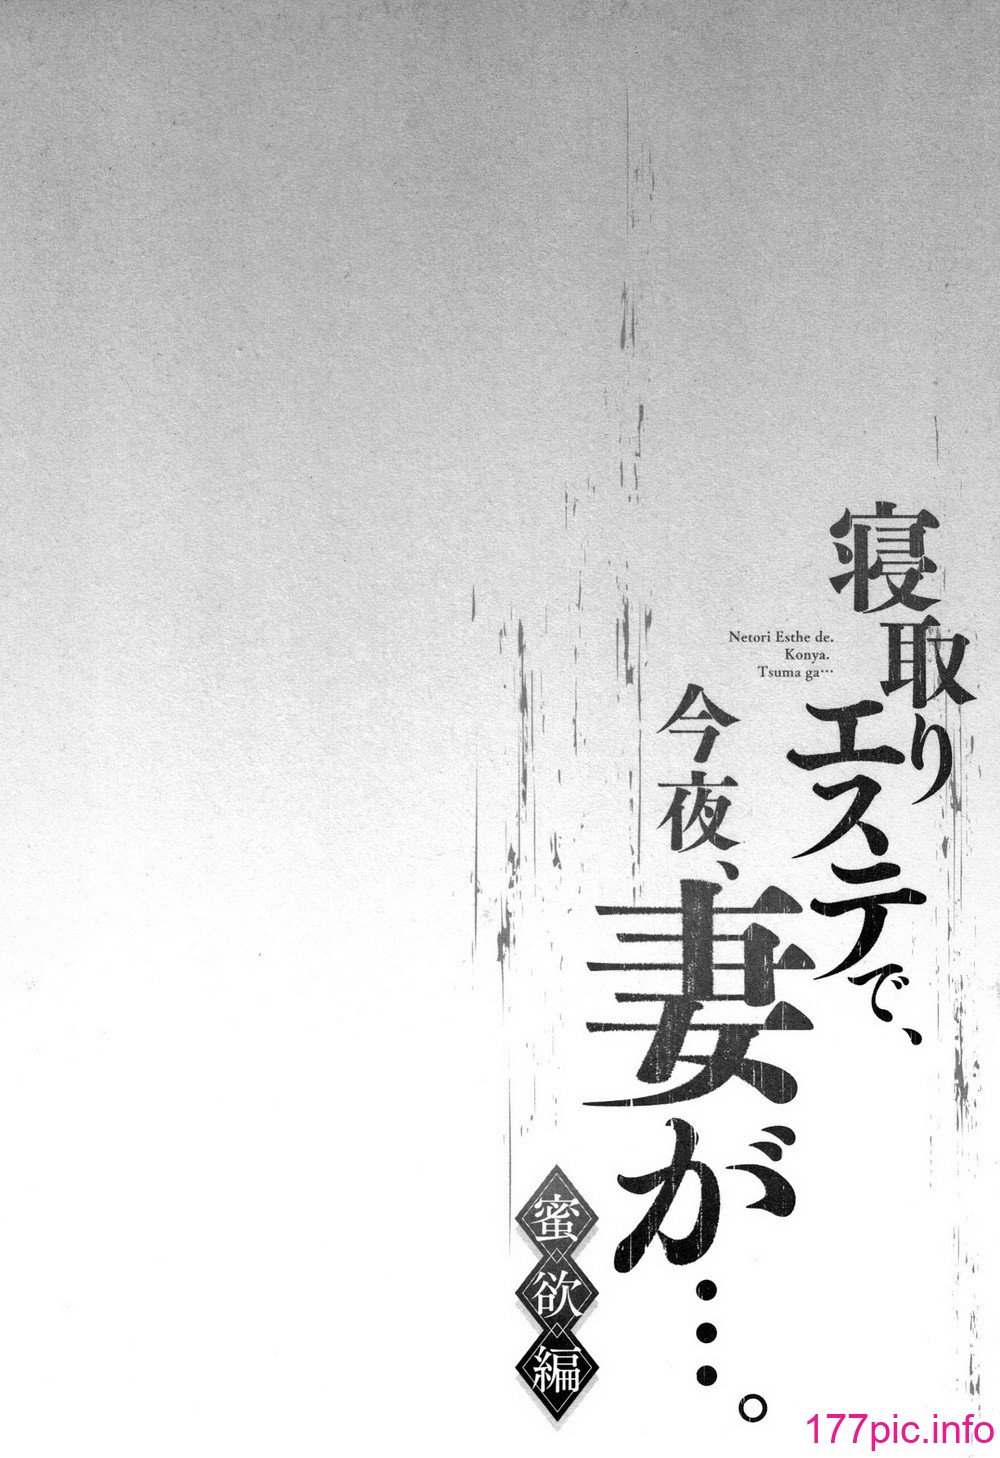 寝取り
エステで、
Netori Esthe de.
Konya.
Tsuma ga…
今夜、
妻が…。
蜜欲編
177pic.info